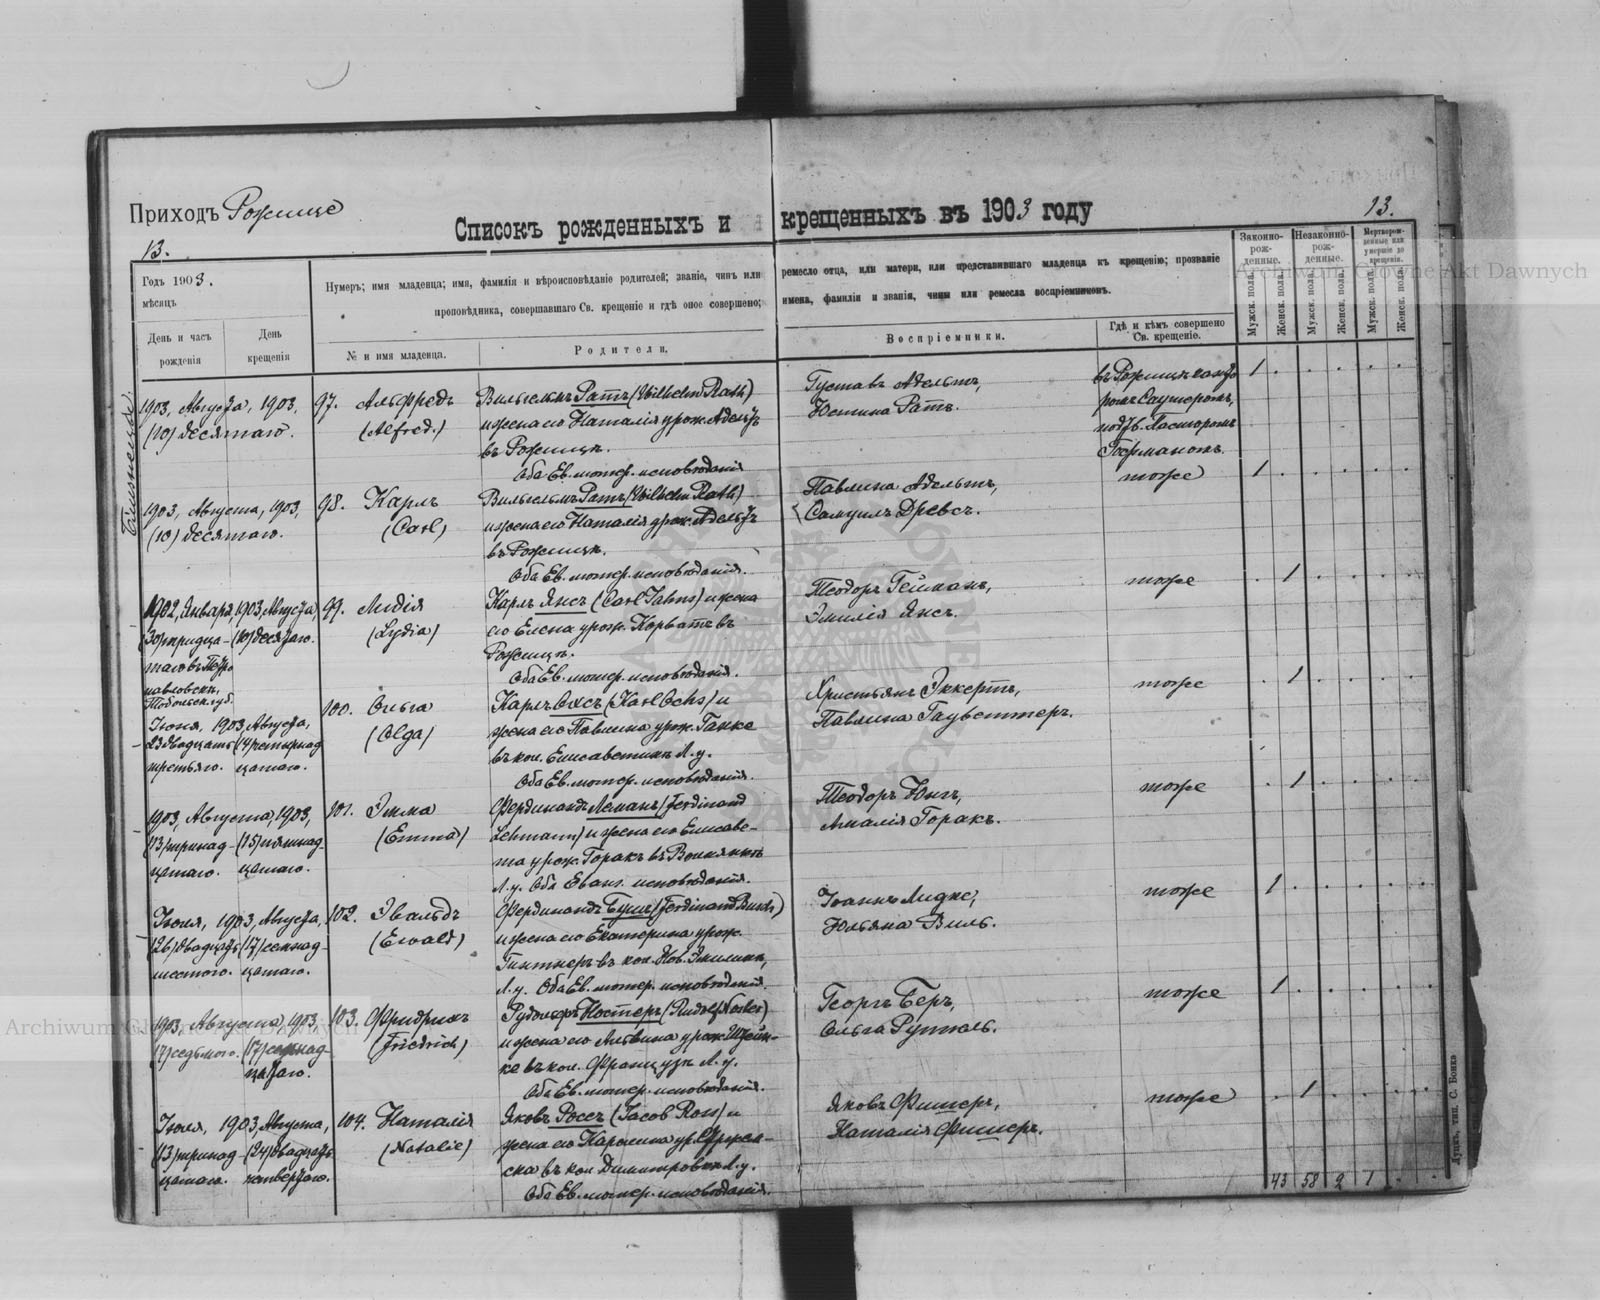 Приходъ Рожище
Списокъ рожденныхъ и крещенныхъ въ 1903 году
13.
13.
Годъ 1903.
мѣсяцъ
День и часъ рожденія
День крещенія
Нумеръ; имя младенца; имя, фамилія и вѣроисповѣданіе родителей; званіе, чинъ или
проповѣдника, совершавшаго Св. крещеніе и гдѣ оное совершено;
№ и имя младенца.
Родители.
ремесло отца, или матери, или представившаго младенца къ крещенію; прозваніе
имена, фамиліи и званія, чины или ремесла воспріемниковъ.
Воспріемники.
Гдѣ и кѣмъ совершено
Св. крещеніе.
Законно-
рож-
денные.
Незаконно-
рож-
денные.
Мертворож-
денные или
умершіе до
крещенія.
Мужск. пола.
Женск. пола.
Мужск. пола.
Женск. пола.
Мужск. пола.
Женск. пола.
Близнецы.
1903, Августа, 1903,
(10) десятаго.
97. Альфредъ
(Alfred.)
Вильгельмъ Ратъ (Wilhelm Rath)
и жена его Наталія урож. Адельтъ
въ Рожищѣ.
Оба Ев. лютер. исповѣданія
Густавъ Адельтъ,
Юстина Ратъ.
въ Рожищѣ канто
ромъ Саутеромъ,
подтв. Пасторомъ
Гофманомъ.
1
1903, Августа, 1903,
(10) десятаго.
98. Карлъ
(Carl)
Вильгельмъ Ратъ (Wilhelm Rath)
и жена его Наталія урож. Адельтъ
въ Рожищѣ.
Оба Ев. лютер. исповѣданія.
Павлина Адельтъ,
Самуилъ Древсъ.
тоже
1
1902, Января, 1903, Августа,
(30) тридца- (10) десятаго.
таго въ Петро
павловскѣ,
Тобольск. губ.
99. Лидія
(Lydia)
Карлъ Янсъ (Carl Jahns) и жена
его Елена урож. Хорватъ въ
Рожищѣ.
Оба Ев. лютер. исповѣданія.
Теодоръ Гейманъ,
Эмилія Янсъ.
тоже
1
Іюня, 1903, Августа,
23 двадцать (14) четырнад
третьяго. цатаго.
100. Ольга
(Olga)
Карлъ Охсъ (Karl Ochs) и
жена его Павлина урож. Ганке
въ кол. Елисаветинъ Л. у.
Оба Ев. лютер. исповѣданія.
Христьянъ Эккертъ,
Павлина Гаубеттеръ.
тоже
1
1903, Августа, 1903,
(13) тринад- (15) пятнад-
цатаго. цатаго.
101. Эмма
(Emma)
Фердинандъ Леманъ (Ferdinand
Lehmann) и жена его Елисаве-
та урож. Горакъ въ
Л. у. Оба Еванг. исповѣданія.
Теодоръ Юнгъ,
Амалія Горакъ.
тоже
1
Іюля, 1903, Августа,
(26) двадцать (17) семнад-
шестого. цатаго.
102. Эвальдъ
(Ewald)
Фердинандъ Бушъ (Ferdinand Busch)
и жена его Екатерина урож.
Гинтнеръ въ кол. Нов.
Л. у. Оба Ев. лютер. исповѣданія.
Іоаннъ Лидке,
Юльяна Виль.
тоже
1
1903, Августа, 1903
(7) седьмого. (17) семнад-
цатаго.
103. Фридрихъ
(Friedrich)
Рудольфъ Костеръ (Rudolf Koster)
и жена его Альвина урож. Штейн-
ке въ кол. Французъ Л. у.
Оба Ев. лютер. исповѣданія.
Георгъ Беръ,
Ольга Руппель.
тоже
1
Іюля, 1903, Августа,
(13) тринад- (24) двадцать
цатаго. четвертаго.
104. Наталія
(Natalie)
Яковъ Россъ (Jacob Ross) и
жена его Каролина ур.
ска въ кол. Димитровкѣ Л. у.
Оба Ев. лютер. исповѣданія.
Яковъ Фишеръ,
Наталія Фишеръ.
тоже
1
43 58 2 1
Луцкъ, тип. С. Бонка
Archiwum Główne Akt Dawnych
Archiwum Główne Akt Dawnych